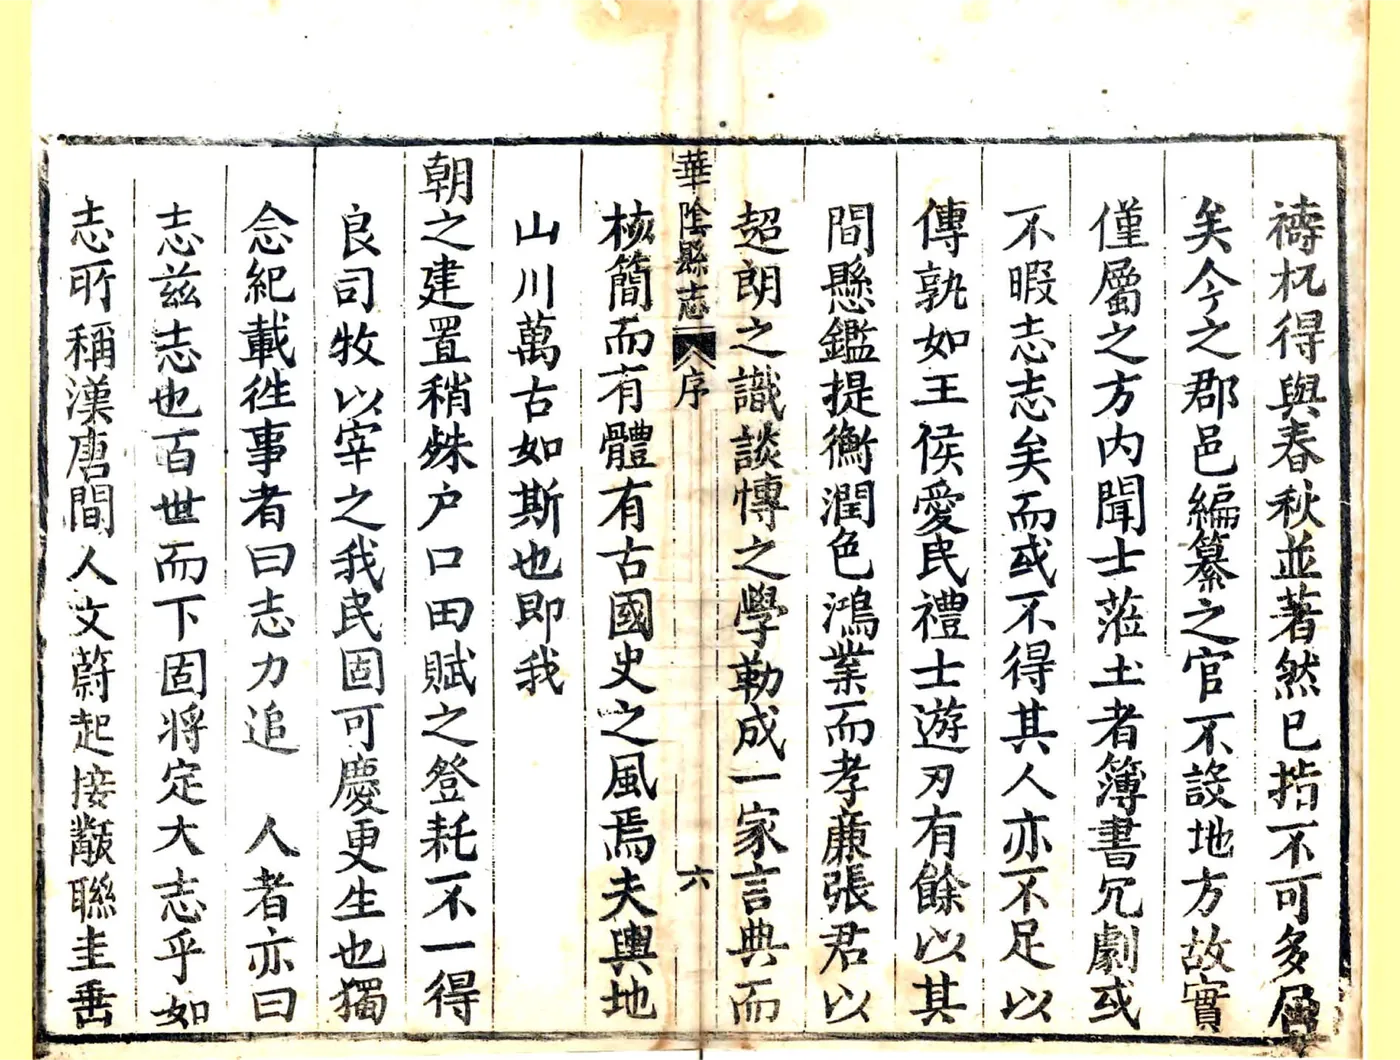 禱杌得與春秋並著然已指不可多屈
矣今之郡邑編纂之官不設地方故實
僅屬之方內聞士蒞土者簿書冗劇或
不暇志志矣而或不得其人亦不足以
傳孰如王侯愛民禮士遊刃有餘以其
間懸鑑提衡潤色鴻業而孝廉張君以
超朗之識談慱之學勒成一家言典而
華陰縣志 序 六
核簡而有體有古國史之風焉夫輿地
山川萬古如斯也即我
朝之建置稍殊户口田賦之登耗不一得
良司牧以宰之我民固可慶更生也獨
念紀載徃事者曰志力追 人者亦曰
志兹志也百世而下固将定大志乎如
志所稱漢唐間人文蔚起接觳聯圭垂